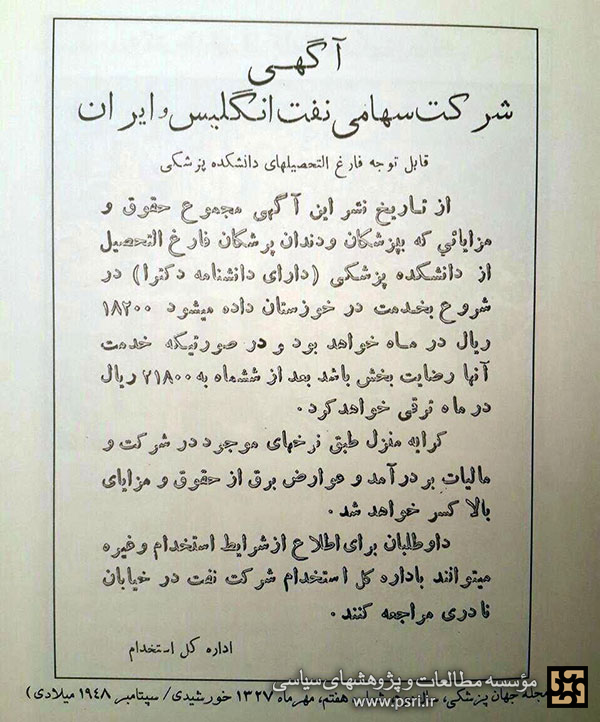 آگهی
شرکت سهامی نفت انگلیس و ایران
قابل توجه فارغ التحصیلهای دانشکده پزشکی
از تاریخ نشر این آگهی مجموع حقوق و
مزایائی که بپزشکان و دندان پزشکان فارغ التحصیل
از دانشکده پزشکی (دارای دانشنامه دکترا) در
شروع بخدمت در خوزستان داده میشود ۱۸۲۰۰
ریال در ماه خواهد بود و در صورتیکه خدمت
آنها رضایت بخش باشد بعد از ششماه به ۲۱۸۰۰ ریال
در ماه ترقی خواهد کرد.
کرایه منزل طبق نرخهای موجود در شرکت و
مالیات بر درآمد و عوارض برق از حقوق و مزایای
بالا کسر خواهد شد.
داوطلبان برای اطلاع از شرایط استخدام و غیره
میتوانند باداره کل استخدام شرکت نفت در خیابان
نادری مراجعه کنند.
اداره کل استخدام
مؤسسه مطالعات و پژوهشهای سیاسی
مجله جهان پزشکی، هفتم، مهر ماه ۱۳۲۷ خورشیدی/ سپتامبر ۱۹۴۸ میلادی)
www.psri.ir